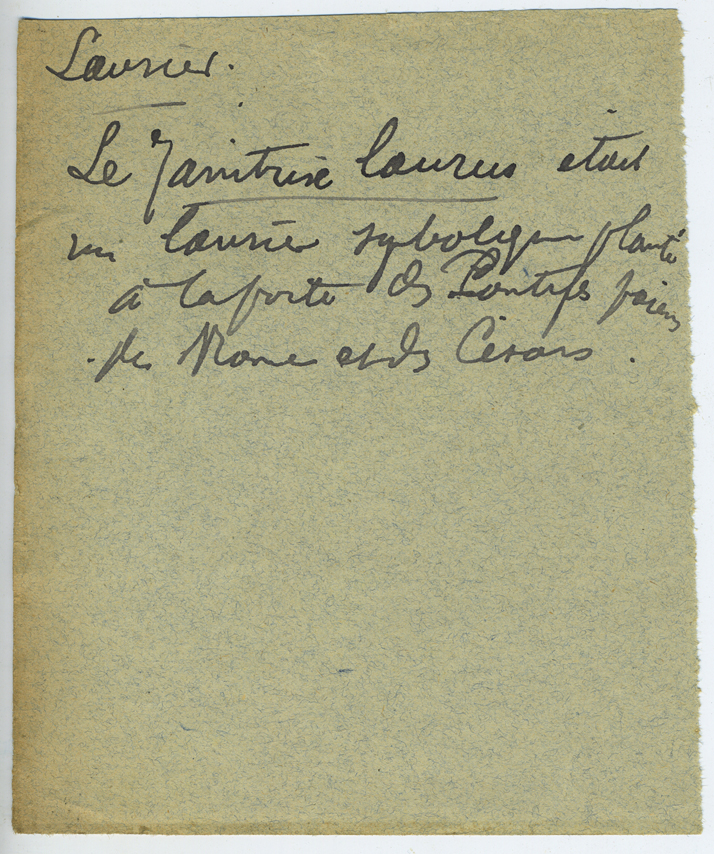 Laurier.
Le Janitrix laurus était
un laurier symbolique planté
à la porte des Pontifes païens
de Rome et des Césars.